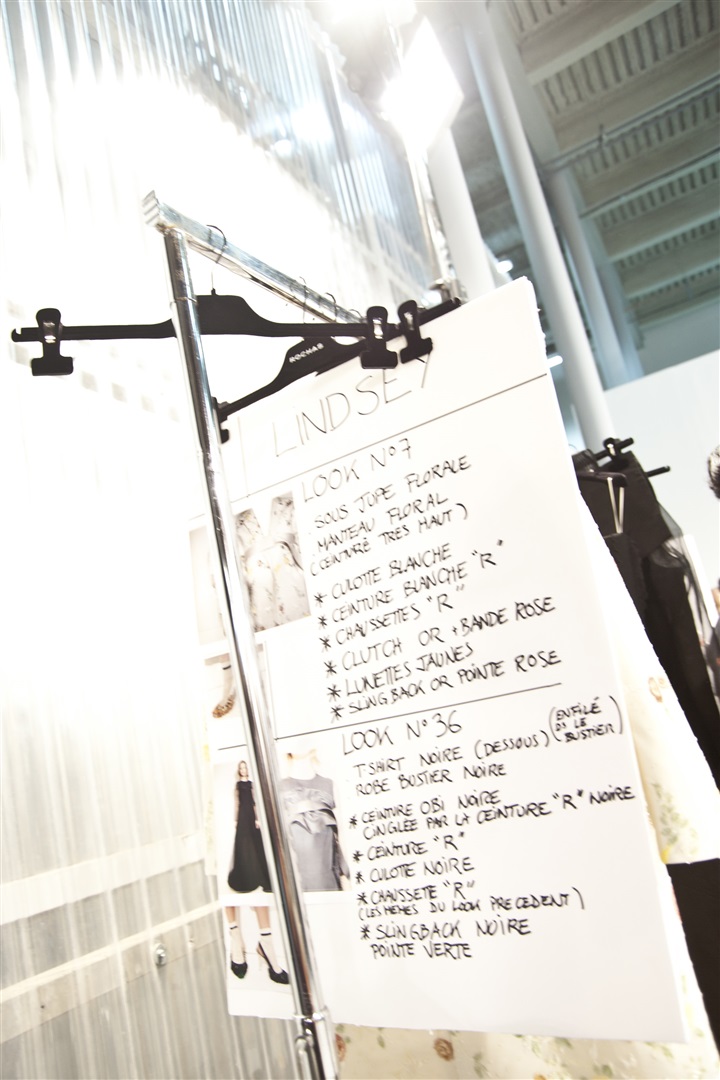 ROCHAS
LINDSEY
LOOK N°7
. SOUS JUPE FLORALE
. MANTEAU FLORAL
(CEINTURÉ TRES HAUT)
* CULOTTE BLANCHE
* CEINTURE BLANCHE "R"
* CHAUSSETTES "R"
* CLUTCH OR + BANDE ROSE
* LUNETTES JAUNES
* SLINGBACK OR POINTE ROSE
LOOK N°36
. TSHIRT NOIRE (DESSOUS) (ENFILÉ
DS LE
BUSTIER)
ROBE BUSTIER NOIRE
* CEINTURE OBI NOIRE
CINGLÉE PAR LA CEINTURE "R" NOIRE
* CEINTURE "R"
* CULOTTE NOIRE
* CHAUSSETE "R"
(LES MEMES DU LOOK PRECEDENT)
* SLINGBACK NOIRE
POINTE VERTE